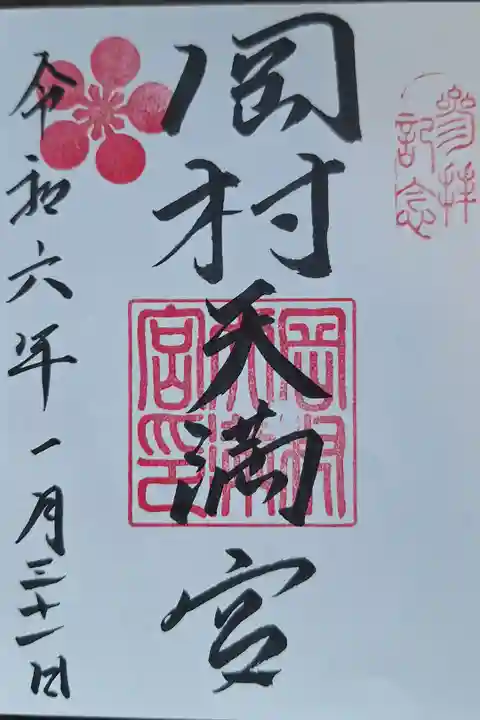 参拝
記念
岡村天満宮
岡村
天満
宮印
令和六年一月三十一日